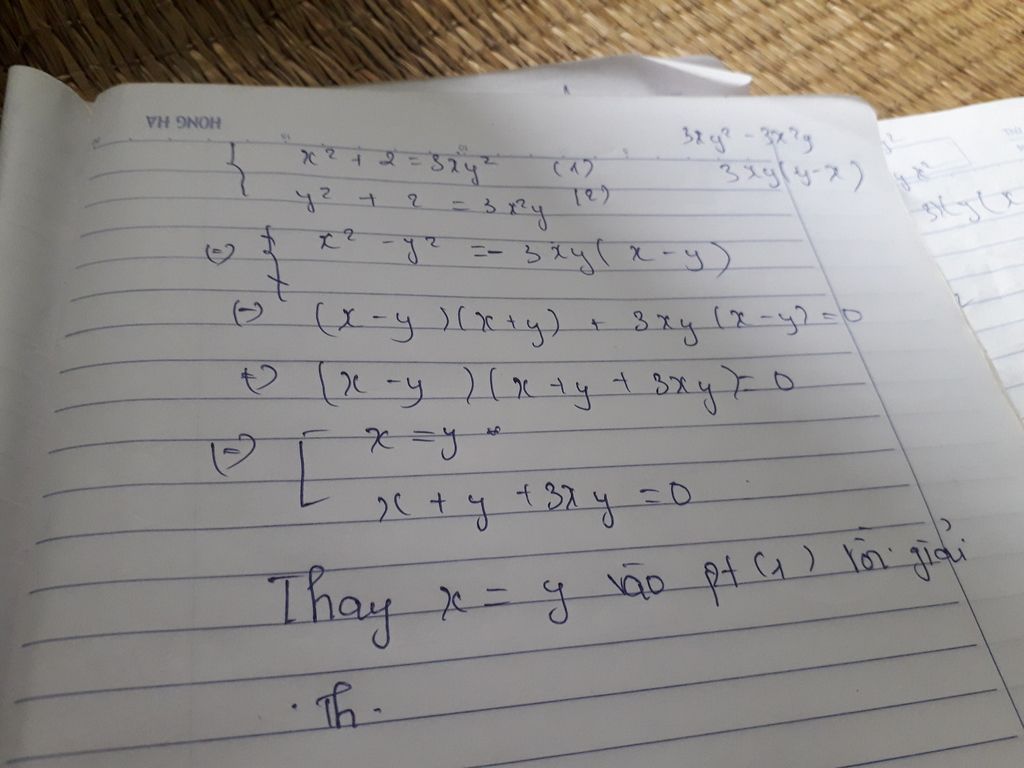 HONG HA
3xy² - 3x²y
3xy(y-x)
{ x² + 2 = 3xy² (1)
y² + 2 = 3x²y (2)
(=) { x² - y² = - 3xy(x - y)
(=) (x - y)(x+y) + 3xy(x-y) = 0
(=) (x - y)(x + y + 3xy) = 0
(=) [ x = y
x + y + 3xy = 0
Thay x = y vào pt (1) rồi giải
. Th .